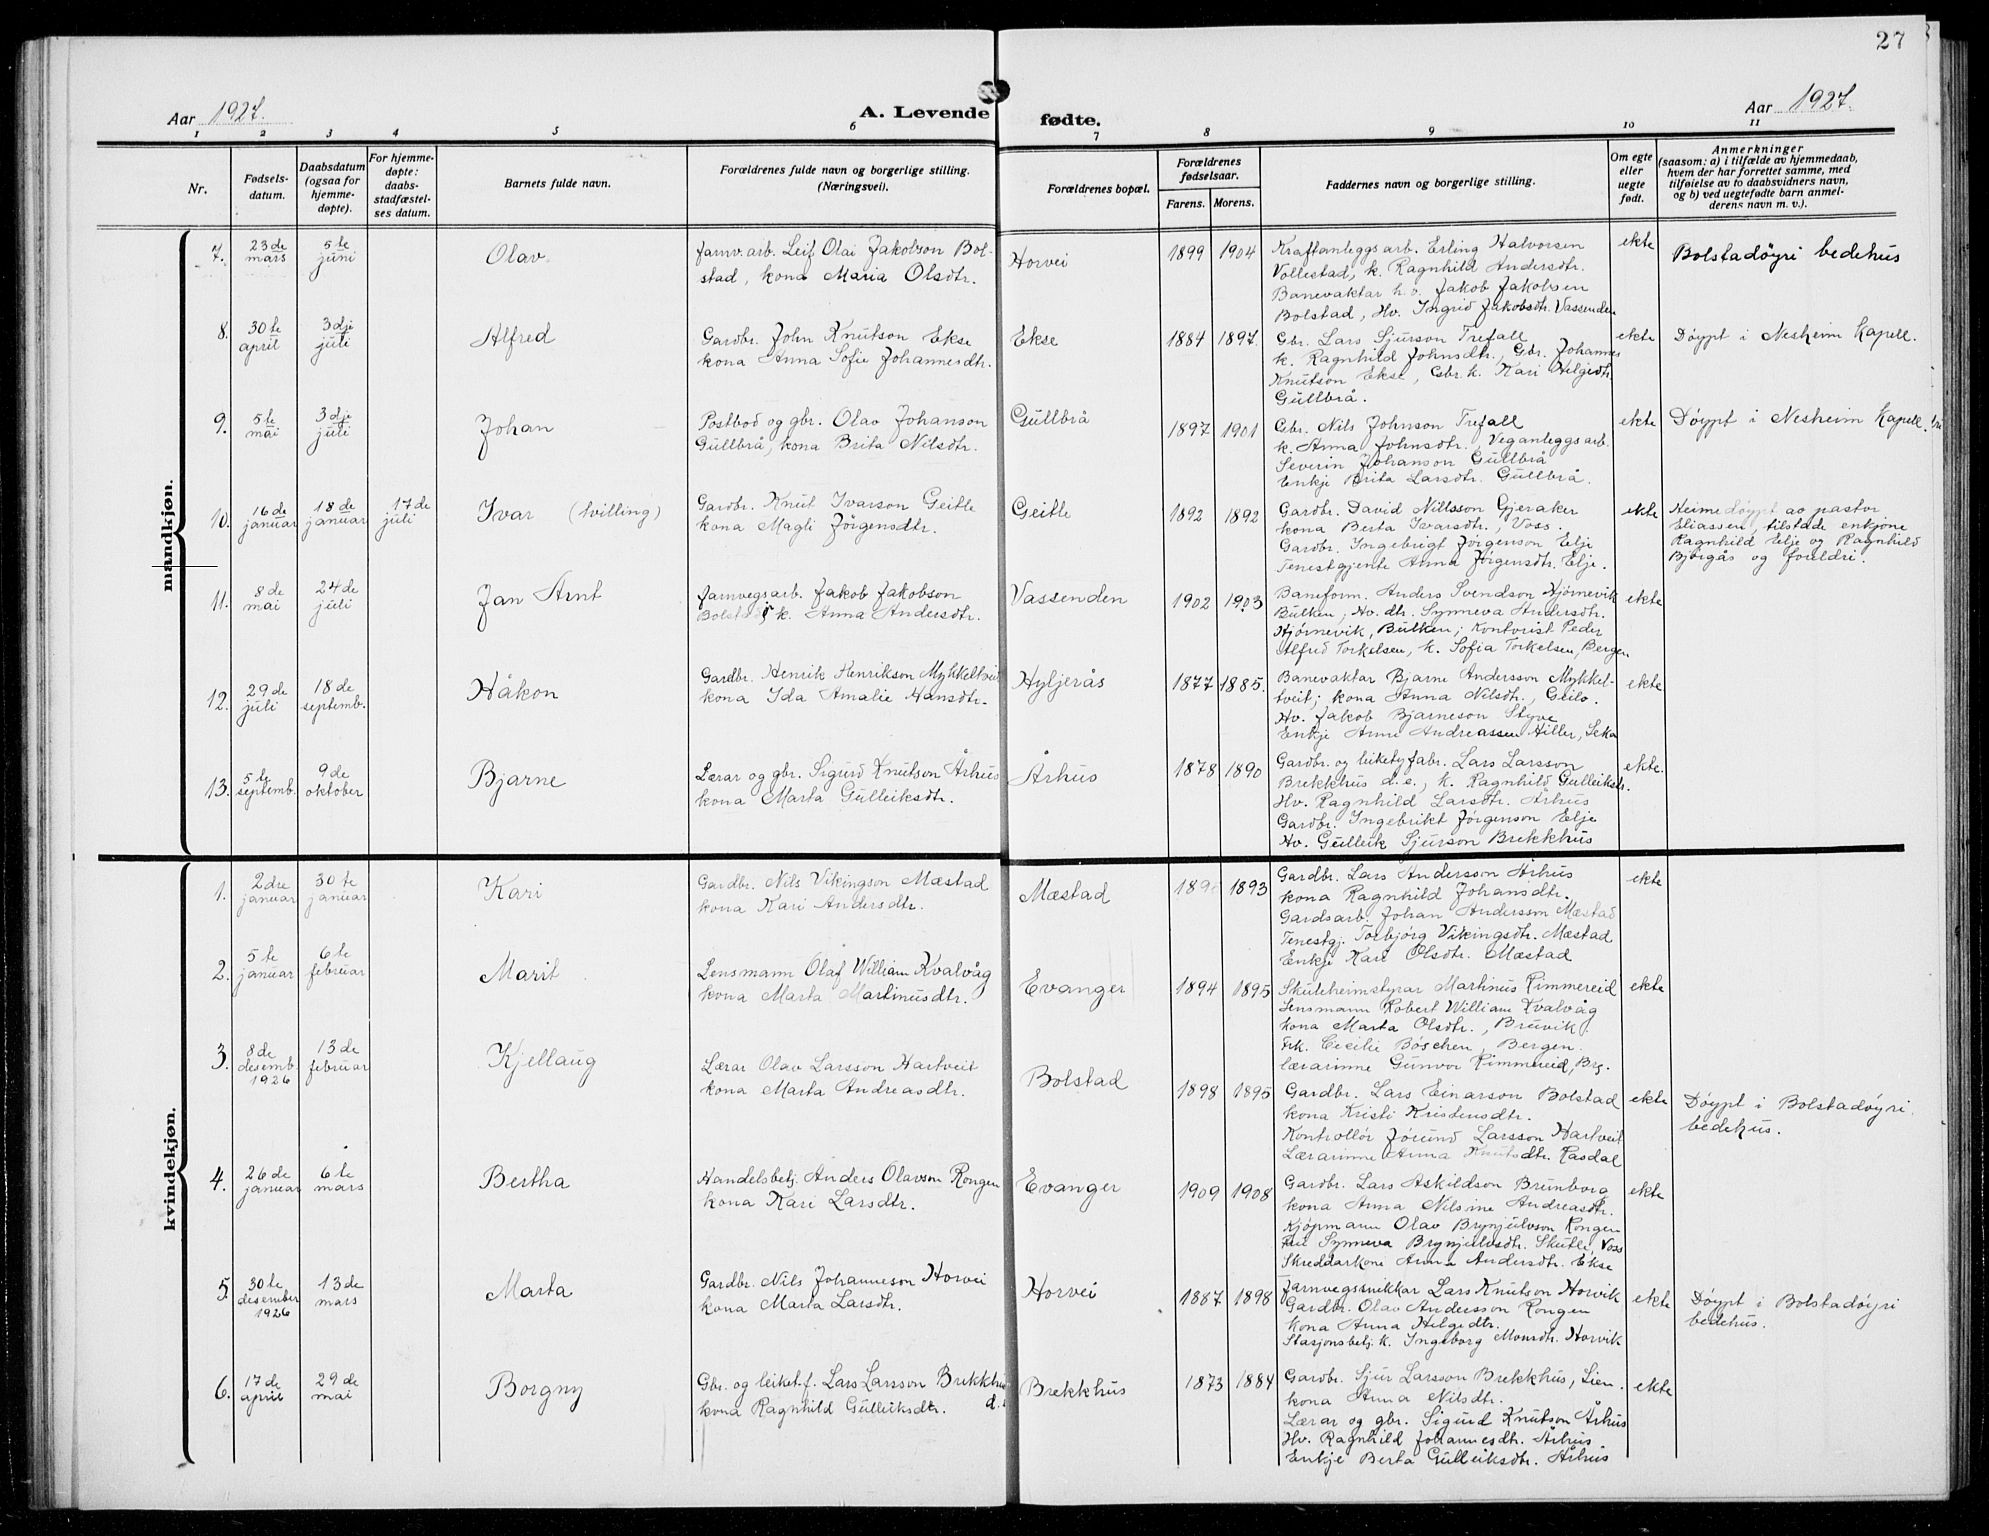 27
Aar 1927.
A. Levende fødte.
Aar 1927.
1 2 3 4 5 6 7 8 9 10 11
Nr.
Fødsels-
datum.
Daabsdatum
(ogsaa for
hjemme-
døpte).
For hjemme-
døpte:
daabs-
stadfæstel-
ses datum.
Barnets fulde navn.
Forældrenes fulde navn og borgerlige stilling.
(Næringsvei).
Forældrenes bopæl.
Forældrenes
fødselsaar.
Farens. Morens.
Faddernes navn og borgerlige stilling.
Om egte
eller
uegte
født.
Anmerkninger
(saasom: a) i tilfælde av hjemmedaab,
hvem der har forrettet samme, med
tilføielse av to daabsvidners navn,
og b) ved uegtefødte barn anmel-
derens navn m. v.).
mandkjøn.
7.
23de
mars
5te
juni
Olav
Jarnv.arb. Leif Olai Jakobson Bol-
stad, kona Maria Olsdtr.
Horvei
1899 1904
Kraftanleggsarb. Erling Halvorsen
Vollestad, k. Ragnhild Andersdtr.
Banevaktar Jakob Jakobsen
Bolstad, Hv. Ingrid Jakobsdtr. Vassenden
ekte
Bolstadøyri bedehus
8.
30te
april
3dje
juli
Alfred
Gardbr. John Knutson Ekse
kona Anna Sofie Johannesdtr.
Ekse
1884 1897.
Gbr. Lars Sjurson Trefall
k. Ragnhild Johnsdtr., Gbr. Johannes
Knutson Ekse, Gbr.k. Kari Helgedtr.
Gullbrå.
ekte
Døypt i Nesheim Kapell.
9.
5te
mai
3dje
juli
Johan
Postbod og gbr. Olav Johanson
Gullbrå, kona Brita Nilsdtr.
Gullbrå
1897 1901
Gbr. Nils Johnson Trefall
k. Anna Johnsdtr., Veganleggsarb.
Severin Johanson Gullbrå
Enkje Brita Larsdtr. Gullbrå.
ekte
Døypt i Nesheim Kapell.
10.
16de
januar
18de
januar
17de
juli
Ivar (tvilling)
Gardbr. Knut Ivarson Geitle
kona Magli Jørgensdtr.
Geitle
1892 1892
Gardbr. David Nillsson Gjeraker
kona Berta Ivarsdtr., Voss.
Gardbr. Ingebrigt Jørgenson Elje
Tenestgjente Anna Jørgensdtr. Elje.
ekte
Heimedøypt av pastor
Eliassen, tilstade enkjone
Ragnhild Elje og Ragnhild
Bjørgås og foreldri.
11.
8de
mai
24de
juli
Jan Arnt
Jarnvegsarb. Jakob Jakobson
Bolstad, k. Anna Andersdtr.
Vassenden
1902 1903
Baneform. Anders Svendson Hjørnevik
Bulken, Hv. dtr. Synneva Andersdtr.
Hjørnevik, Bulken; Kontorist Peder
Alfred Torkelsen, k. Sofia Torkelsen, Bergen
ekte
12.
29de
juli
18de
septemb.
Håkon
Gardbr. Henrik Henrikson Mykkeltveit
kona Ida Amalie Hansdtr.
Hyljerås
1877 1885.
Banevaktar Bjarne Andersson Mykkel-
tveit; kona Anna Nilsdtr., Geilo.
Hv. Jakob Bjarneson Styve
Enkje Anne Andreassen Hiller,
ekte
13.
5te
septemb.
9de
oktober
Bjarne
Lærar og gbr. Sigurd Knutson Århus
kona Marta Gulleiksdtr.
Århus
1878 1890
Gardbr. og leiketyfabr. Lars Larsson
Brekkhus d.e., k. Ragnhild Gulleiksdr.
Hv. Ragnhild Larsdtr. Århus
Gardbr. Ingebrikt Jørgenson Elje
Hv. Gulleik Sjurson Brekkhus
ekte.
kvindekjøn.
1.
2dre
januar
30te
januar
Kari
Gardbr. Nils Vikingson Mæstad
kona Kari Andersdtr.
Mæstad
1893
Gardbr. Lars Andersson Århus
kona Ragnhild Johansdtr.
Gardsarb. Johan Andersson Mæstad
Tenestgj. Torbjørg Vikingsdtr. Mæstad
Enkje Kari Olsdtr. Mæstad
ekte
2.
5te
januar
6te
februar
Marit
Lensmann Olaf William Kvalvåg
kona Marta Martinusdtr.
Evanger
1894 1895
Skuleheimstyrar Martinus Rimmereid
Lensmann Robert William Kvalvåg
kona Marta Olsdtr., Bruvik
Frk. Cecilie Bøschen, Bergen.
Lærarinne Gunvor Rimmereid, Brg.
ekte
3.
8de
desemb.
1926
13de
februar
Kjellaug
Lærar Olav Larsson Hartveit
kona Marta Andreasdtr.
Bolstad
1898 1895
Gardbr. Lars Einarson Bolstad
kona Kristi Kristensdtr.
Kontrollør Jørund Larsson Hartveit
Lærarinne Anna Knutsdtr. Rasdal
ekte
Døypt i Bolstadøyri
bedehus.
4.
26de
januar
6te
mars
Bertha
Handelsbetj. Anders Olavson Rongen
kona Kari Larsdtr.
Evanger
1909 1908
Gardbr. Lars Askildson Brunborg
kona Anna Nilsine Andreasdtr.
Kjøpmann Olav Brynjulvson Rongen
Synneva Brynjulvsdtr. Skutle, Voss
Skreddarkone Anna Andersdtr. Ekse
ekte
5.
30te
desember
1926
13de
mars
Marta
Gardbr. Nils Johanneson Horvei
kona Marta Larsdtr.
Horvei
1887 1898
Jarnvegssnikkar Lars Knutson Horvik
Gardbr. Olav Andersson Rongen
kona Anna Helgedtr.
Stasjonsbetj. k. Ingeborg Monsdtr. Horvik
ekte
Døypt i Bolstadøyri
bedehus.
6.
17de
april
29de
mai
Borgny
Gbr. og leiket.f. Lars Larsson Brekkhus
kona Ragnhild Gulleiksdtr. d.
Brekkhus
1873 1884
Gardbr. Sjur Larsson Brekkhus, Lien.
kona Anna Nilsdtr.
Lærar og gbr. Sigurd Knutson Århus
Hv. Ragnhild Johannesdtr. Århus
Enkje Berta Gulleiksdtr. Århus
ekte